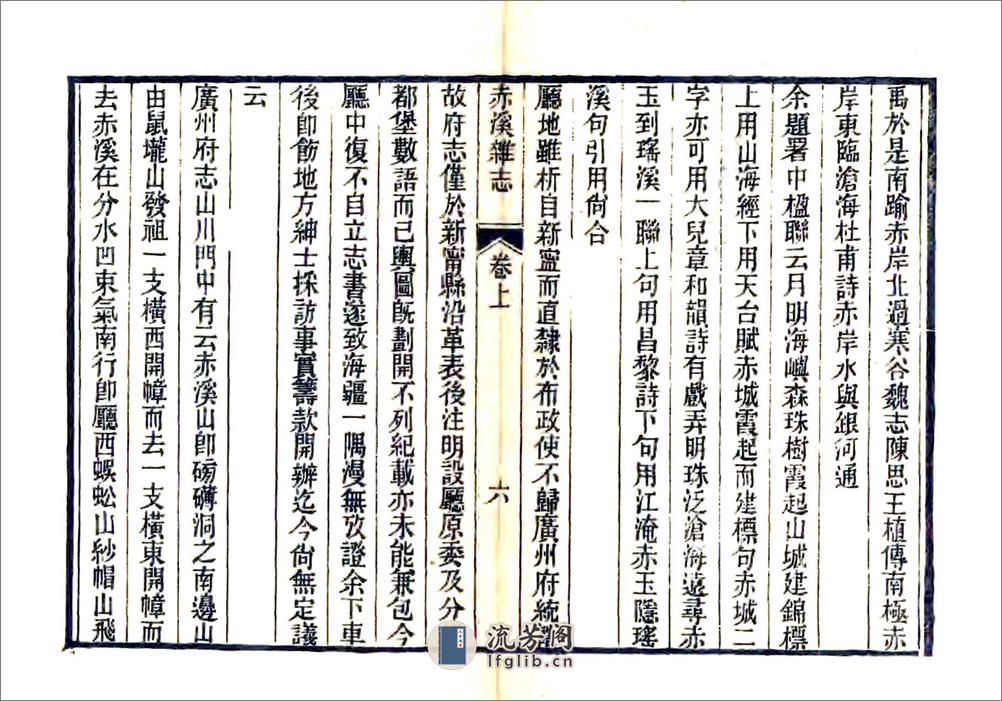 禹於是南踰赤岸北過寒谷魏志陳思王植傳南極赤
岸東臨滄海杜甫詩赤岸水與銀河通
余題署中楹聯云月明海嶼森珠樹霞起山城建錦標
上用山海經下用天台賦赤城霞起而建標句赤城二
字亦可用大兒章和韻詩有戲弄明珠泛滄海遠尋赤
玉到瑤溪一聯上句用昌黎詩下句用江淹赤玉隱瑤
溪句引用尙合
廳地雖析自新寧而直隸於布政使不歸廣州府統
赤溪雜志
卷上
六
故府志僅於新甯縣沿革表後注明設廳原委及分
都堡數語而已輿圖旣劃開不列紀載亦未能兼包今
廳中復不自立志書遂致海疆一隅漫無攷證余下車
後卽飭地方紳士採訪事實籌款開辦迄今尙無定議
云
廣州府志山川門中有云赤溪山卽磅礴洞之南邊山
由鼠壠山發祖一支橫西開幛而去一支橫東開幛而
去赤溪在分水凹東氣南行卽廳西蜈蚣山紗帽山飛
流芳阁
lfglib.cn